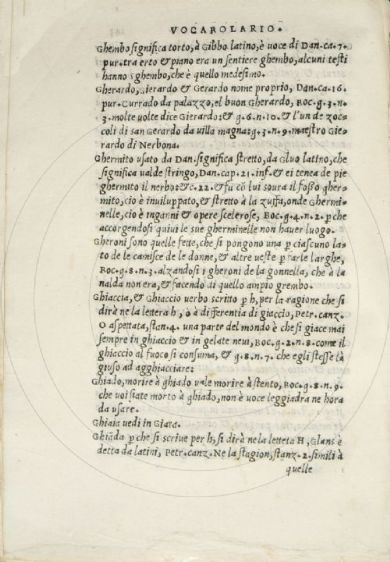 VOCABOLARIO.
Ghembo significa torto, à Gibbo latino, è uoce di Dan. ca. 7.
pur. tra erto & piano era un sentiere ghembo, alcuni testi
hanno sghembo, che è quello medesimo.
Gherardo, Gierardo & Gerardo nome proprio, Dan. ca. 16.
pur. Currado da palazzo, el buon Gherardo, Boc. g. 3. n.
3. molte uolte dice Gierardo: & g. 6. n. 10. & l'un de zoc
coli di san Gerardo da uilla magna: g. 3. n. 9. maestro Gie
rardo di Nerbona.
Ghermito usato da Dan. significa stretto, da Gluo latino, che
significa ualde stringo, Dan. cap. 21. inf. & ei tenea de pie
ghermito il nerbo: & c. 22. & fu cō lui soura il fosso gher
mito, cio è inuiluppato, & stretto à la zuffa, onde Ghermi
nelle, cio è inganni & opere scelerose, Boc. g. 4. n. 2. ꝑche
accorgendosi quiui le sue gherminelle non hauer luogo.
Gheroni sono quelle fette, che si pongono una ꝑ ciascuno la
to de le camisce de le donne, & altre ueste ꝑ farle larghe,
Boc. g. 8. n. 3. alzandosi i gheroni de la gonnella, che à la
nalda non era, & facendo di quello ampio grembo.
Ghiaccia, & Ghiaccio uerbo scritto ꝑ h, per la ragione che si
dirà ne la lettera h, ò à differentia di giaccio, Petr. canz.
O aspettata, stan. 4. una parte del mondo è che si giace mai
sempre in ghiaccio & in gelate neui, Boc. g. 2. n. 8. come il
ghiaccio al fuoco si consuma, & g. 8. n. 7. che egli stesse là
giuso ad agghiacciare:
Ghiado, morire à ghiado uale morire à stento, Boc. g. 8. n. 9.
che uoi siate morto à ghiado, non è uoce leggiadra ne hora
da usare.
Ghiaia uedi in Giara.
Ghiāda ꝑ che si scriue per h, si dirà ne la lettera H, Glans è
detta da latini, Petr. canz. Ne la stagion, stanz. 2. simili à
quelle